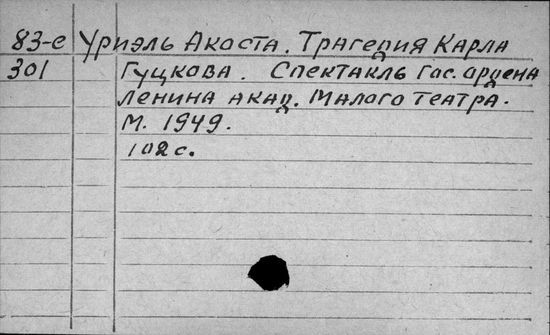 83-е Уриэль Акоста. Трагедия Карла
301 Гуцкова. Спектакль Гос. ордена
Ленина акад. Малого театра.
М. 1949.
102 с.